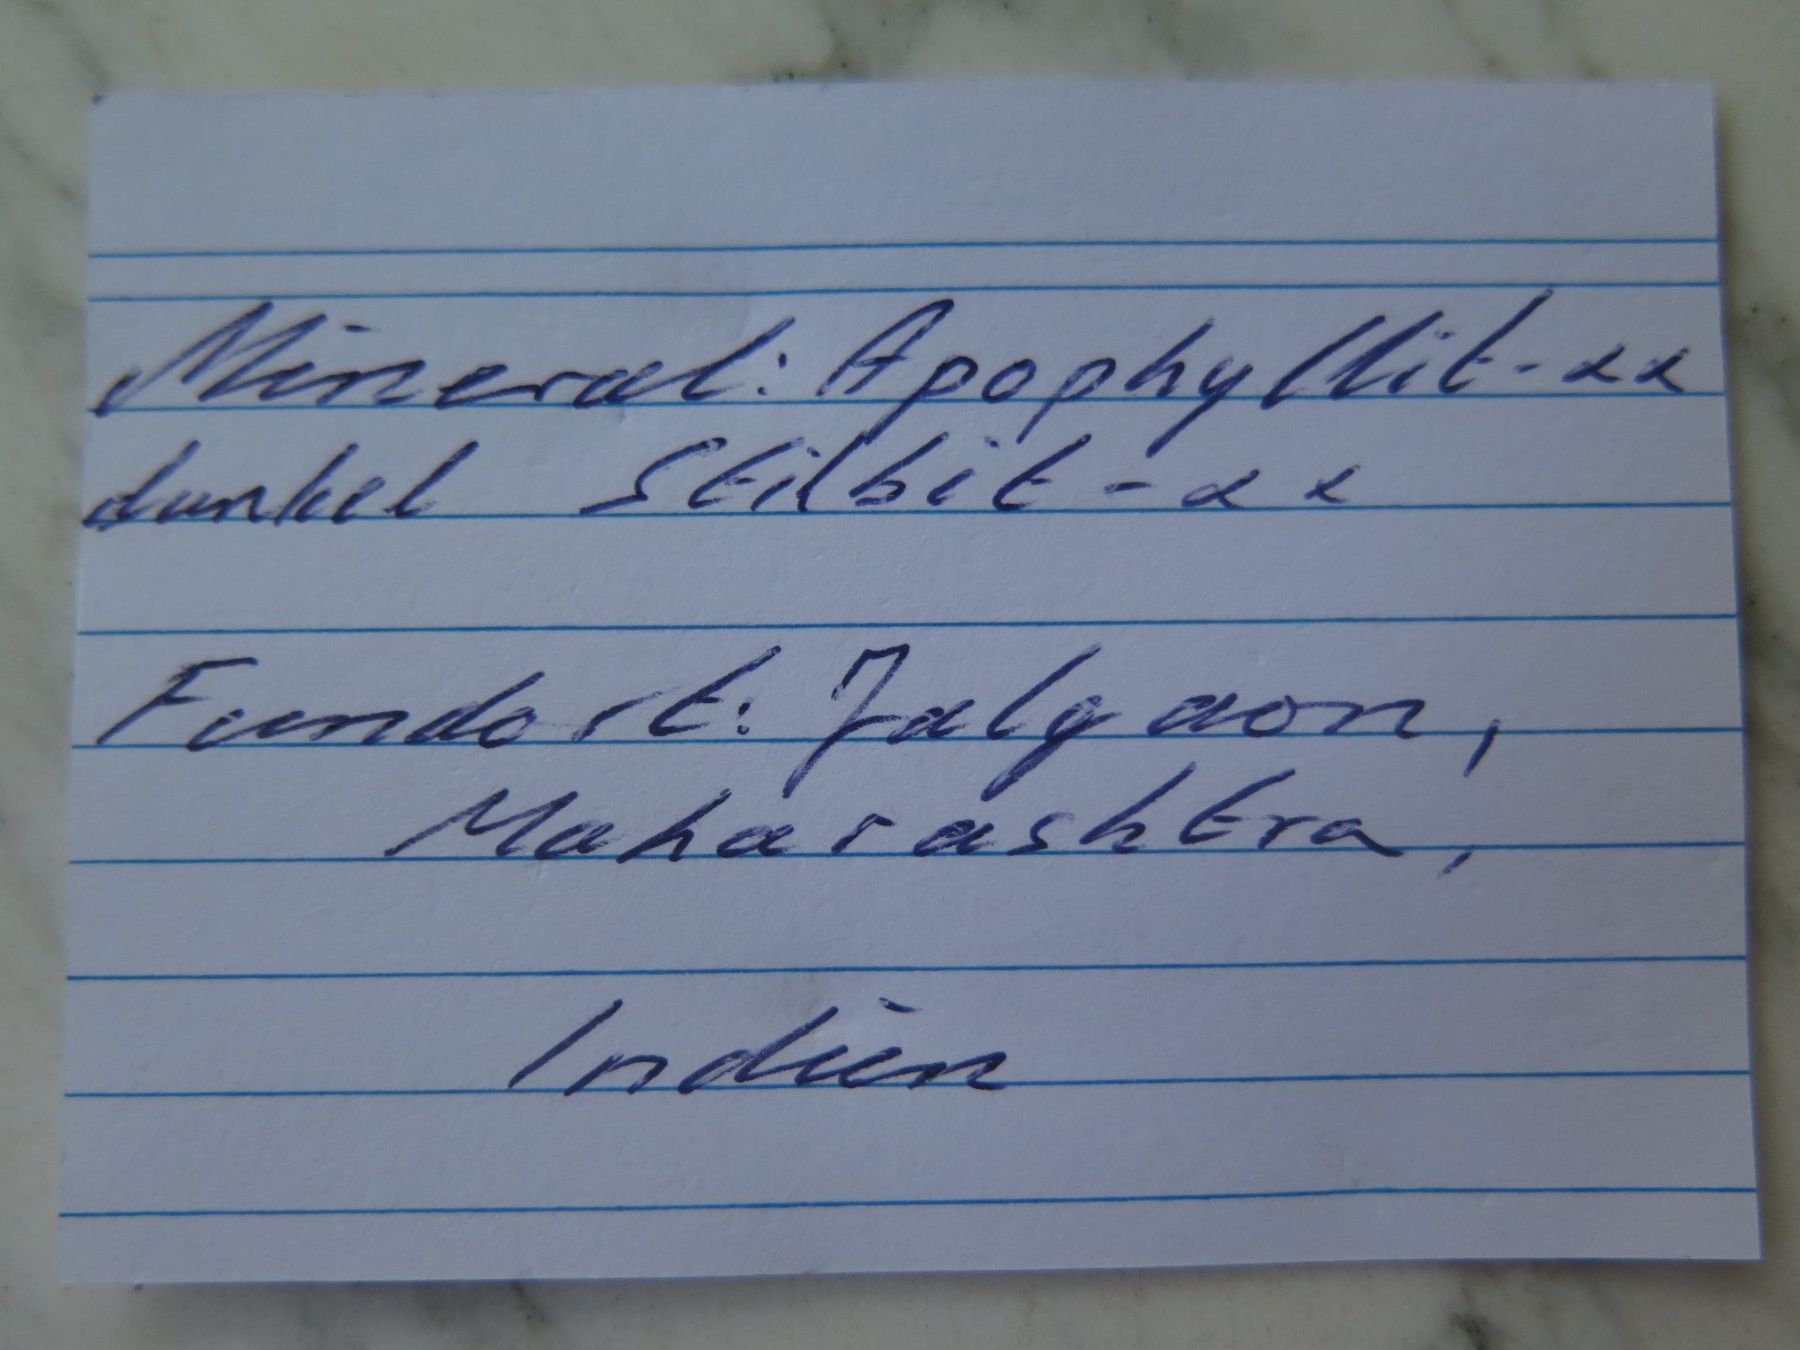 Mineral: Apophyllit-xx
dunkel Stilbit-xx
Fundort: Jalgaon,
Maharashtra,
Indien